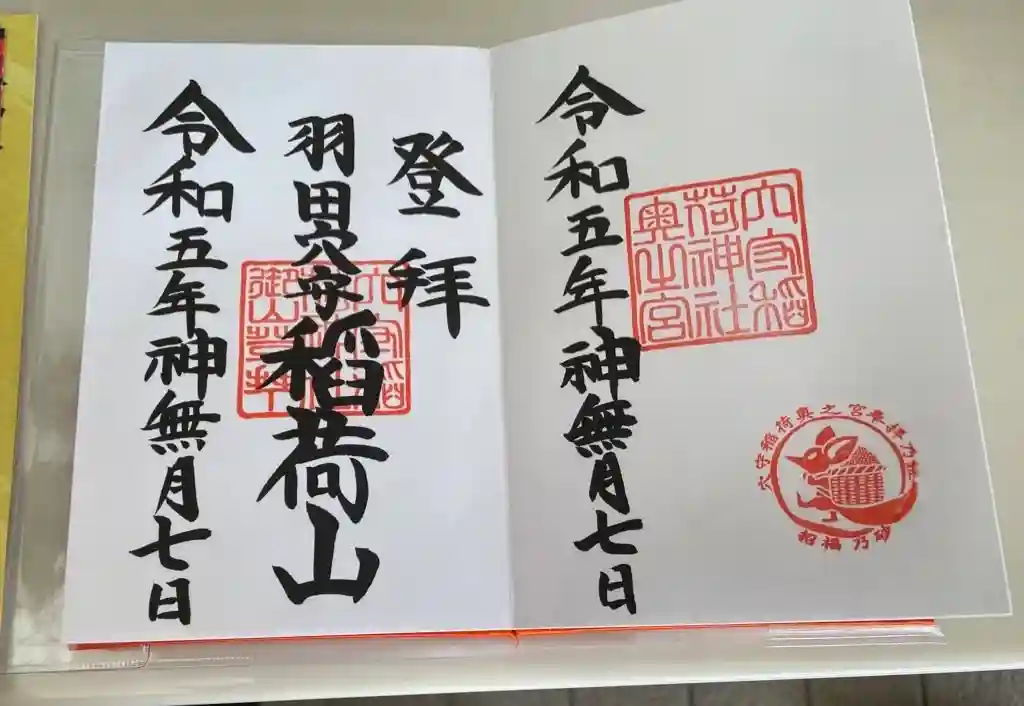 穴守稲
荷神社
奥之宮
穴守稲荷奥之宮奉拝乃証
招福乃砂
令和五年神無月七日
登拝
羽田穴守稲荷山
穴守稲
御山登拝
令和五年神無月七日